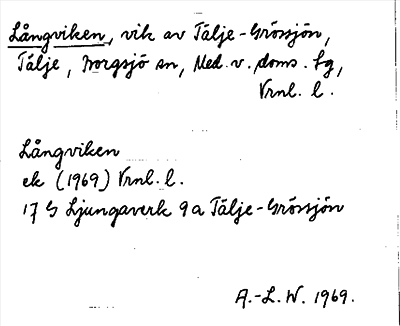 Långviken, vik av Tälje-Grössjön,
Tälje, Borgsjö sn, Med. v. doms. lg,
Vrnl. l.
Långviken
ek (1969) Vrnl. l.
17 G Ljungaverk 9 a Tälje-Grössjön
A.-L. W. 1969.